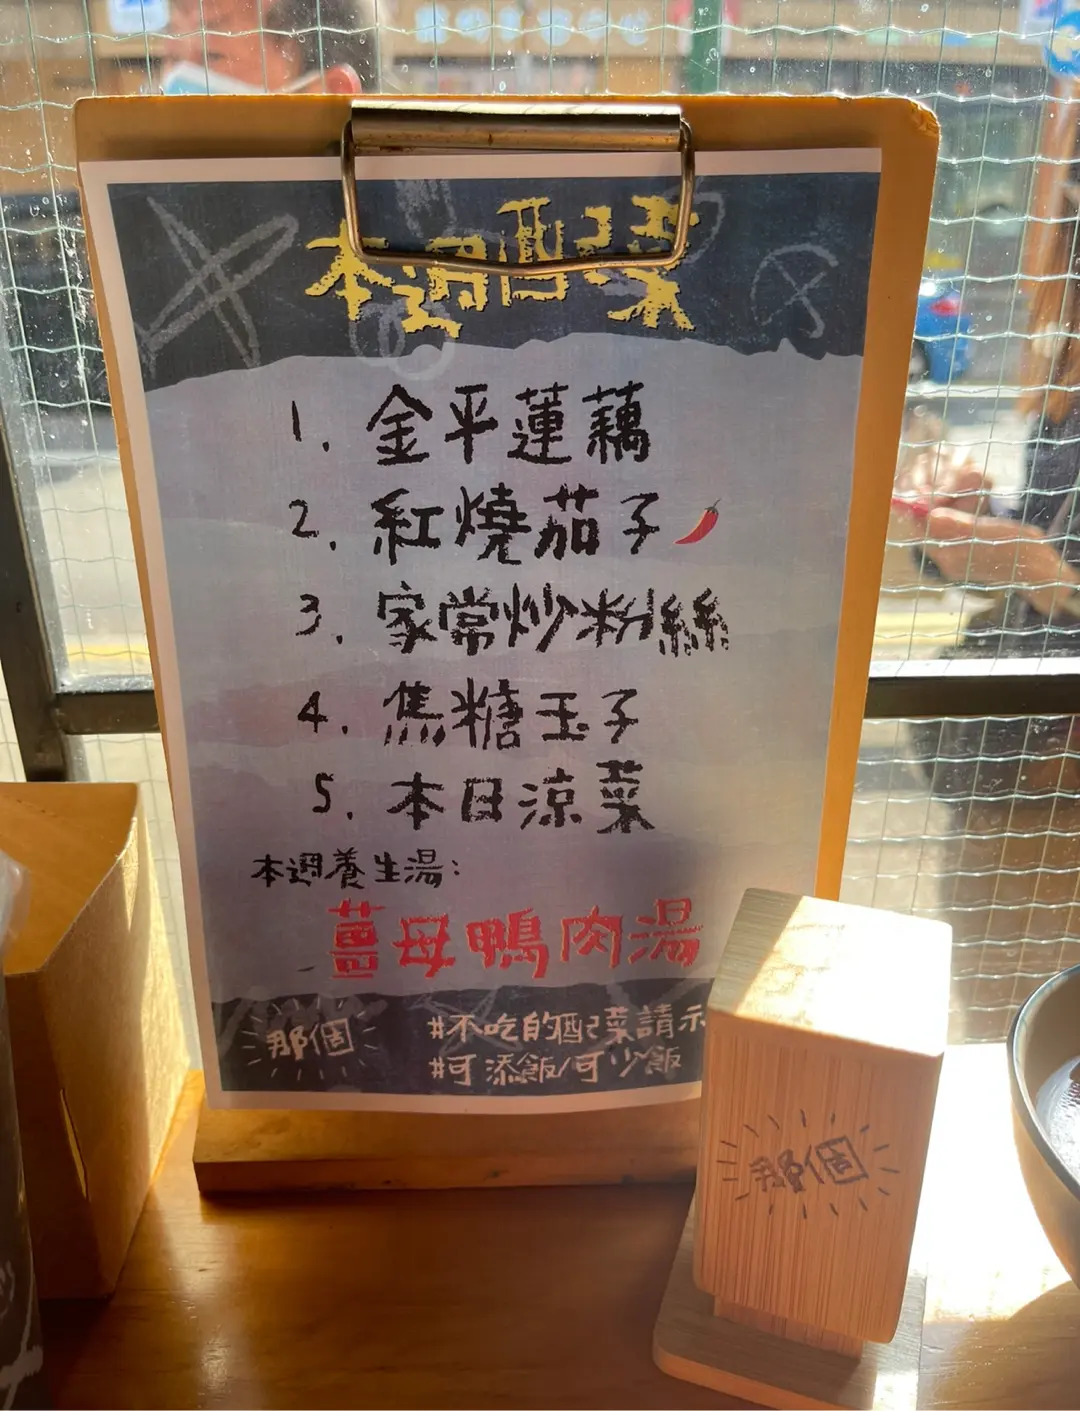 本週配菜
1. 金平蓮藕
2. 紅燒茄子
3. 家常炒粉絲
4. 焦糖玉子
5. 本日涼菜
本週養生湯:
薑母鴨肉湯
那個
#不吃的配菜請示
#可添飯/可少飯
那個